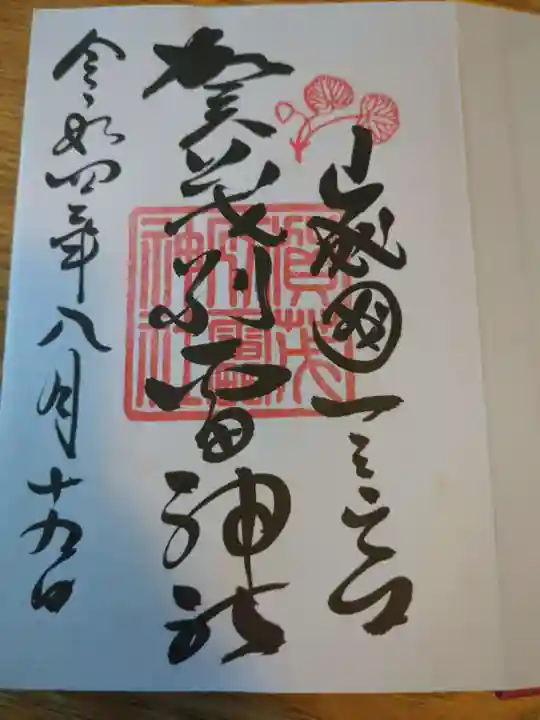 山城國一之宮
賀茂別雷神社
令和四年八月十九日
賀茂
別雷
神社